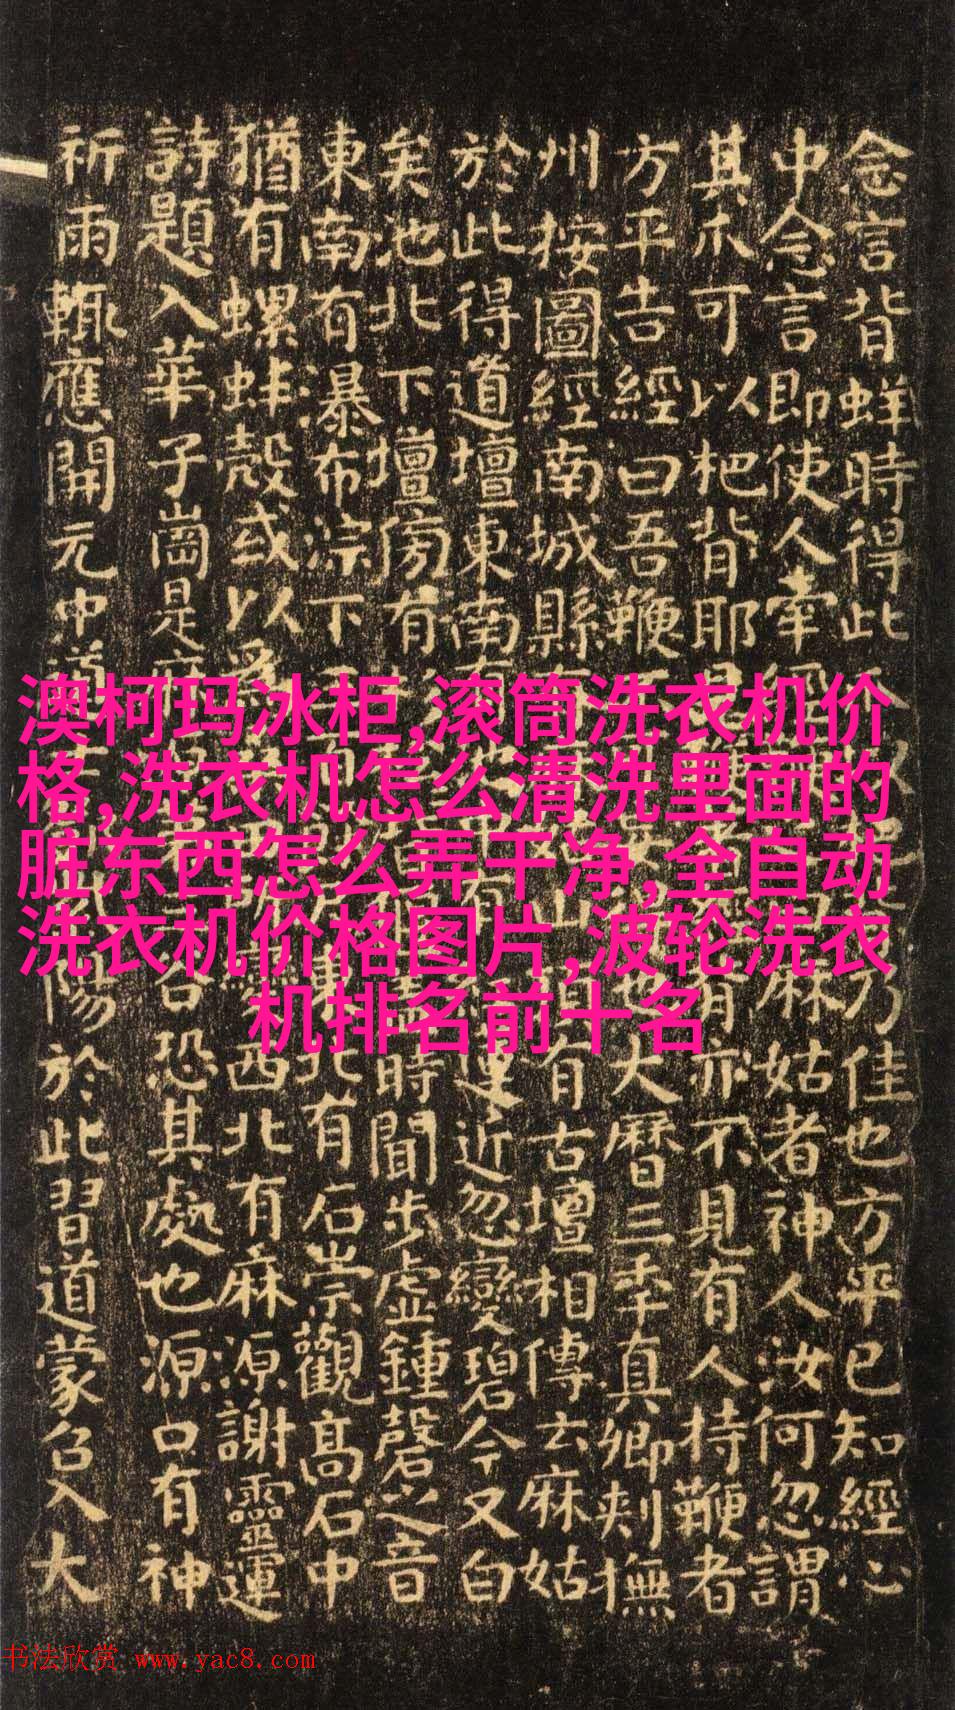 念言背蛘時得此乃佳也方平已知經心
中念言即使人牽麻姑者神人汝何忽謂
其爪可以杷背耶見有亦不見有人持鞭者
方平告經曰吾鞭不也大曆三年真卿刺撫
州按圖經南城縣有山頂有古壇相傳云麻姑
於此得道壇東南有蓮近忽變碧今又白
矣池北下壇傍有蓋時聞步虛鍾磬之音
東南有瀑布淙下北有石崇觀高石中
猶有螺蚌殼或以為西北有麻源謝靈運
詩題入華子崗是麻谷恐其處也源口有神
祈雨輒應開元中道陽於此習道蒙召入大
澳柯玛冰柜,滚筒洗衣机价
格,洗衣机怎么清洗里面的
脏东西怎么弄干净,全自动
洗衣机价格图片,波轮洗衣
机排名前十名
书法欣赏 www.yac8.com